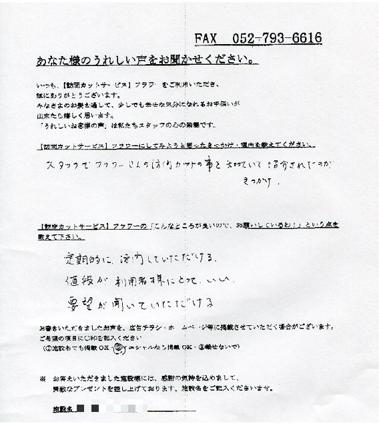 FAX 052-793-6616
あなた様のうれしい声をお聞かせください。
いつも、【訪問カットサービス】フラワーをご利用いただき、
誠にありがとうございます。
みなさまのお髪を通して、少しでも幸せな気分になれるお手伝いが
出来たら嬉しく思います。
「うれしいお客様の声」は私たちスタッフの心の栄養です。
【訪問カットサービス】フラワーにしてみようと思ったきっかけ・理由を教えてください。
スタッフでフラワーさんの訪問カットの事を知っていて紹介されたのが
きっかけ。
【訪問カットサービス】フラワーの「こんなところが良いので、お願いしているわ!」という点を
教えて下さい。
定期的に、訪問していただける。
値段が利用者様にとって、いい。
要望が聞いていただける
お書きいただきましたお声を、広告チラシ・ホームページ等に掲載させていただく場合がございます。
ご希望の項目に○印をご記入ください
(①施設名でも掲載OK・②イニシャルなら掲載OK・③載せないで)
※ お答えいただきました施設様には、感謝の気持を込めまして、
素敵なプレゼントを差し上げております。施設名をご記入くださいませ。
施設名